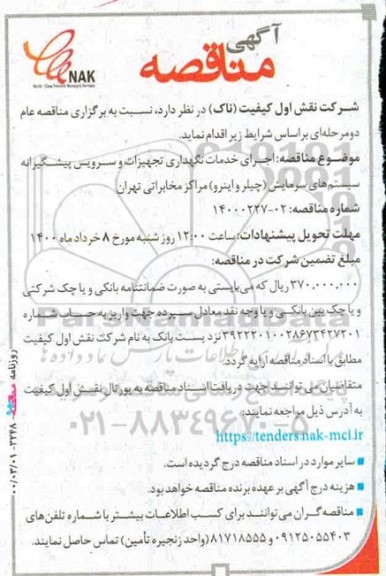 آگهی
مناقصه
NAK
شرکت نقش اول کیفیت (ناک) در نظر دارد، نسبت به برگزاری مناقصه عام
دو مرحله‌ای براساس شرایط زیر اقدام نماید.
موضوع مناقصه: اجرای خدمات نگهداری تجهیزات و سرویس پیشگیرانه
سیستم‌های سرمایش (چیلر و اینرو) مراکز مخابراتی تهران
شماره مناقصه: ۰۲-۱۴۰۰۰۲۲۷
مهلت تحویل پیشنهادات: ساعت ۱۲:۰۰ روز شنبه مورخ ۸ خرداد ماه ۱۴۰۰
مبلغ تضمین شرکت در مناقصه:
۳۷۰,۰۰۰,۰۰۰ ریال که می‌بایستی به صورت ضمانتنامه بانکی و یا چک شرکتی
و یا چک بین بانکی و یا وجه نقد معادل سپرده جهت واریز به حساب شماره
۳۹۲۲۲۰۱۰۰۲۸۶۷۳۴۲۷۲۰۱ نزد پست بانک به نام شرکت نقش اول کیفیت
مطابق با اسناد مناقصه ارایه گردد.
متقاضیان می‌توانند جهت دریافت اسناد مناقصه به پورتال نقش اول کیفیت
به آدرس ذیل مراجعه نمایند:
https://tenders.nak-mci.ir
سایر موارد در اسناد مناقصه درج گردیده است.
هزینه درج آگهی بر عهده برنده مناقصه خواهد بود.
مناقصه‌گران می‌توانند برای کسب اطلاعات بیشتر با شماره تلفن‌های
۰۹۱۲۵۰۵۵۴۰۳ و ۸۱۷۱۸۵۵۵ (واحد زنجیره تأمین) تماس حاصل نمایند.
۰۲۱-۸۸۳۴۹۶۷۰-۵
روزنامه
۰۰/۰۳/۰۱-۳۲۲۸